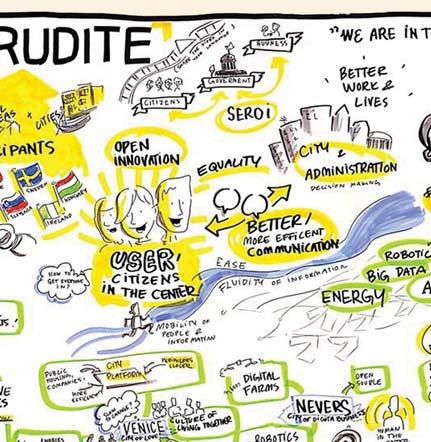 RUDITE
"WE ARE IN T
BUSINESS
GOVERNMENT
CITIZENS
BETTER
WORK &
LIVES
SEROI
+ CITIES
CIPANTS
OPEN
INNOVATION
EQUALITY
CITY &
ADMINISTRATION
DECISION MAKING
SWEDEN
HUNGARY
IRELAND
BETTER/
MORE EFFICENT
COMMUNICATION
USER/
CITIZENS
IN THE CENTER
HOW TO
GET EVERYONE
IN?
EASE
FLUIDITY OF INFORMATION
ROBOTIC
BIG DATA
ENERGY
MOBILITY OF
PEOPLE &
INFORMATION
PUBLIC
HOUSING,
COMPANIES:
MORE
CITY
PLATFORM
CLOSER
DIGITAL
FARMS
OPEN
SOURCE
NEVERS
CITY OF DIGITAL BUSINESS
VENICE
CITY OF LOVE
CULTURE OF
LIVING TOGETHER
HUMAN IN
ENABLES
ROBOTICS